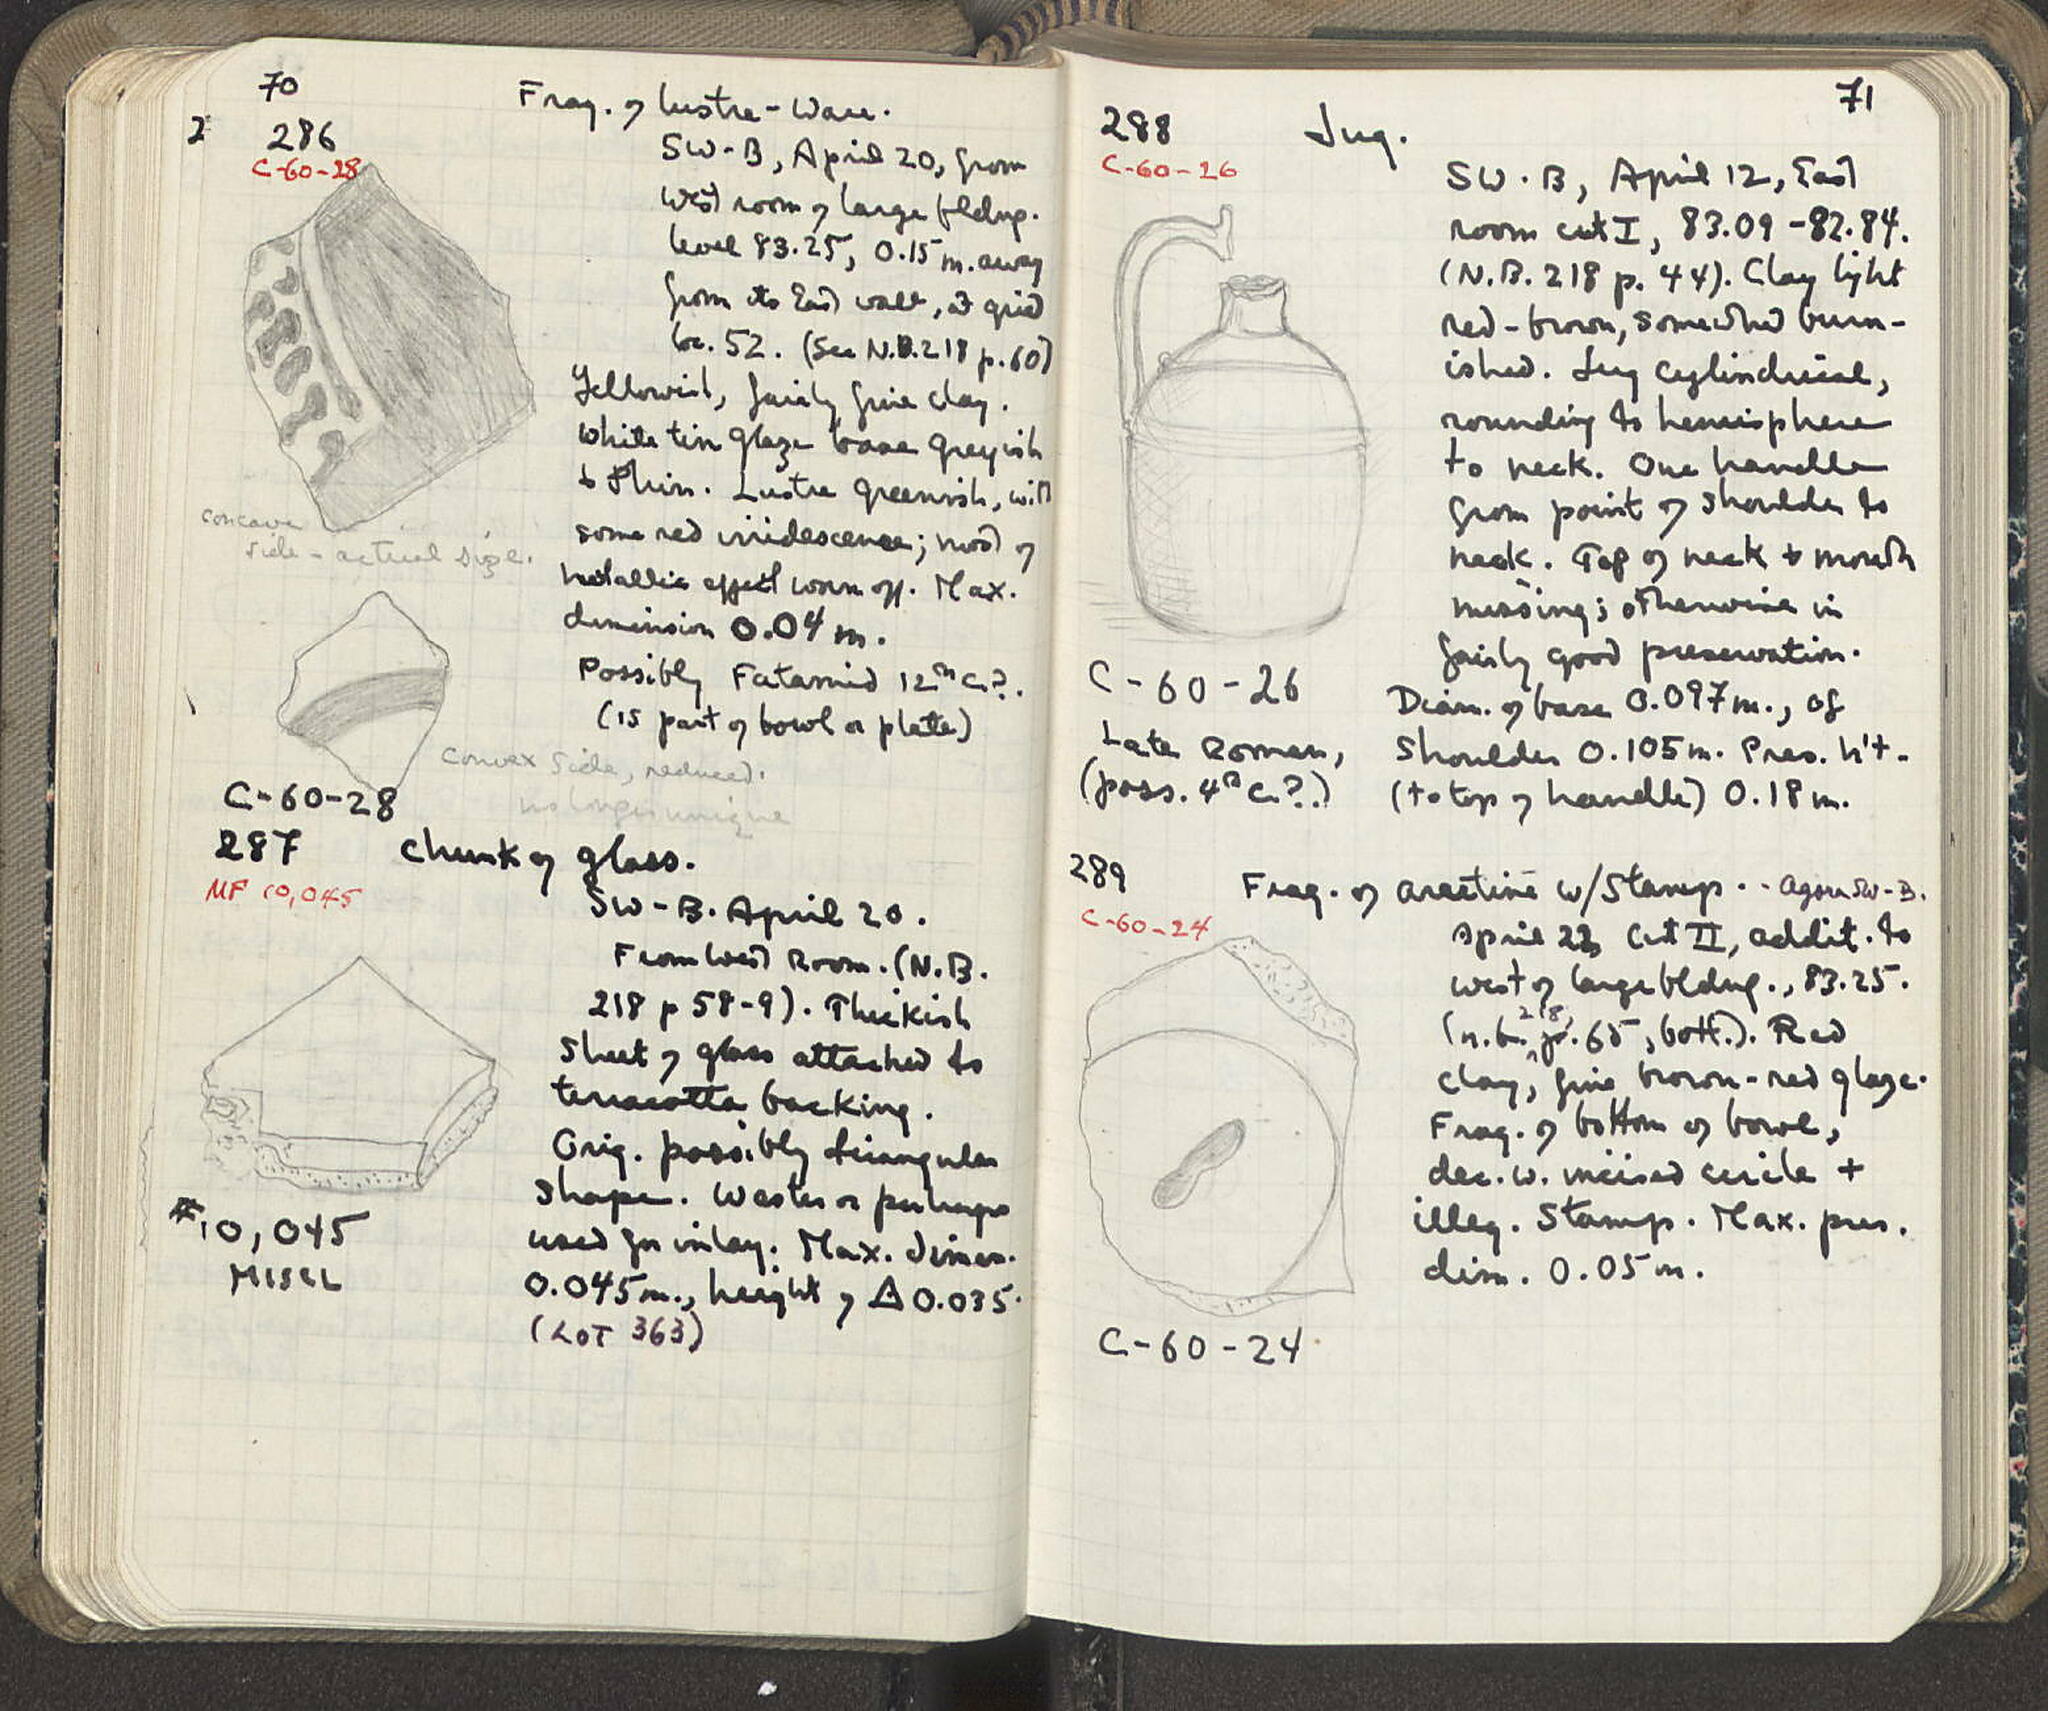 70
2 286 Frag. of lustre-ware.
C-60-28
SW-B, April 20, from
West room of large bldng.
level 83.25, 0.15 m. away
from its East wall, at grid
loc. 52. (See N.B. 218 p. 60)
Yellowish, fairly fine clay.
White tin glaze base greyish
& thin. Lustre greenish, with
some red irridescence; most of
metallic effect worn off. Max.
dimension 0.04 m.
Possibly Fatamid 12th c.?.
(is part of bowl or plate)
concave
side - actual size.
convex side, reduced.
no longer unique
C-60-28
287 Chunk of glass.
MF 10,045
SW-B. April 20.
From West Room. (N.B.
218 p 58-9). Thickish
sheet of glass attached to
terracotta backing.
Orig. possibly triangular
shape. Waster or perhaps
used for inlay. Max. dimen.
0.045 m., height of Δ 0.035.
(LOT 363)
#10,045
MISCL
71
288 Jug.
C-60-26
SW-B, April 12, East
room cut I, 83.09 - 82.84.
(N.B. 218 p. 44). Clay light
red-brown, somewhat burn-
ished. Jug cylindrical,
rounding to hemisphere
to neck. One handle
from point of shoulder to
neck. Top of neck & mouth
missing; otherwise in
fairly good preservation.
Diam. of base 0.097 m., of
shoulder 0.105 m. Pres. h't.
(to top of handle) 0.18 m.
C-60-26
Late Roman,
(poss. 4th c.?.)
289 Frag. of arretine w/stamp. - Agora SW-B.
C-60-24
April 22, cut II, addit. to
west of large bldng., 83.25.
(n.b. 218, p. 65, bott.). Red
clay, fine brown-red glaze.
Frag. of bottom of bowl,
dec. w. incised circle +
illeg. stamp. Max. pres.
dim. 0.05 m.
C-60-24